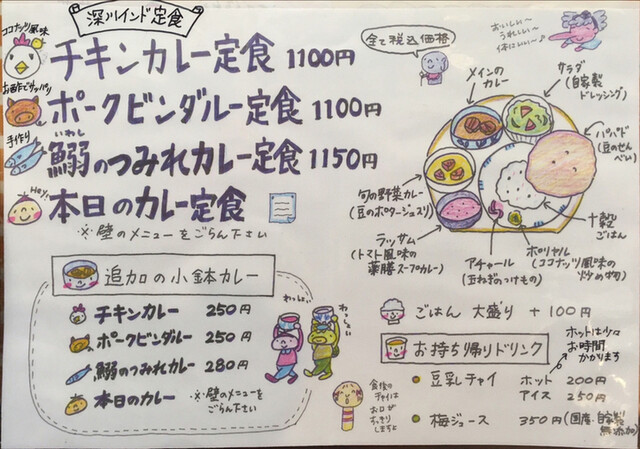 深川インド定食
ココナッツ風味
チキンカレー定食 1100円
お酢でサッパリ
ポークビンダルー定食 1100円
手作り
いわし
鰯のつみれカレー定食 1150円
Hey!
本日のカレー定食
※壁のメニューをごらん下さい
全て税込価格
おいしい〜
うれしい〜
体にいい〜♪
メインのカレー
サラダ
(自家製ドレッシング)
パパド
(豆のせんべい)
旬の野菜カレー
(豆のポタージュスリ)
ラッサム
(トマト風味の薬膳スープカレー)
アチャール
(玉ねぎのつけもの)
ポリヤル
(ココナッツ風味の炒め物)
十穀ごはん
追加の小鉢カレー
チキンカレー 250円
ポークビンダルー 250円
鰯のつみれカレー 280円
本日のカレー ※壁のメニューをごらん下さい
わっしょい
わっしょい
ごはん 大盛り +100円
お持ち帰りドリンク
ホットは少々
お時間
かかります
豆乳チャイ ホット 200円
アイス 250円
梅ジュース 350円 (国産・自家製 無添加)
食後の
チャイは
お口が
すっきり
しますよ